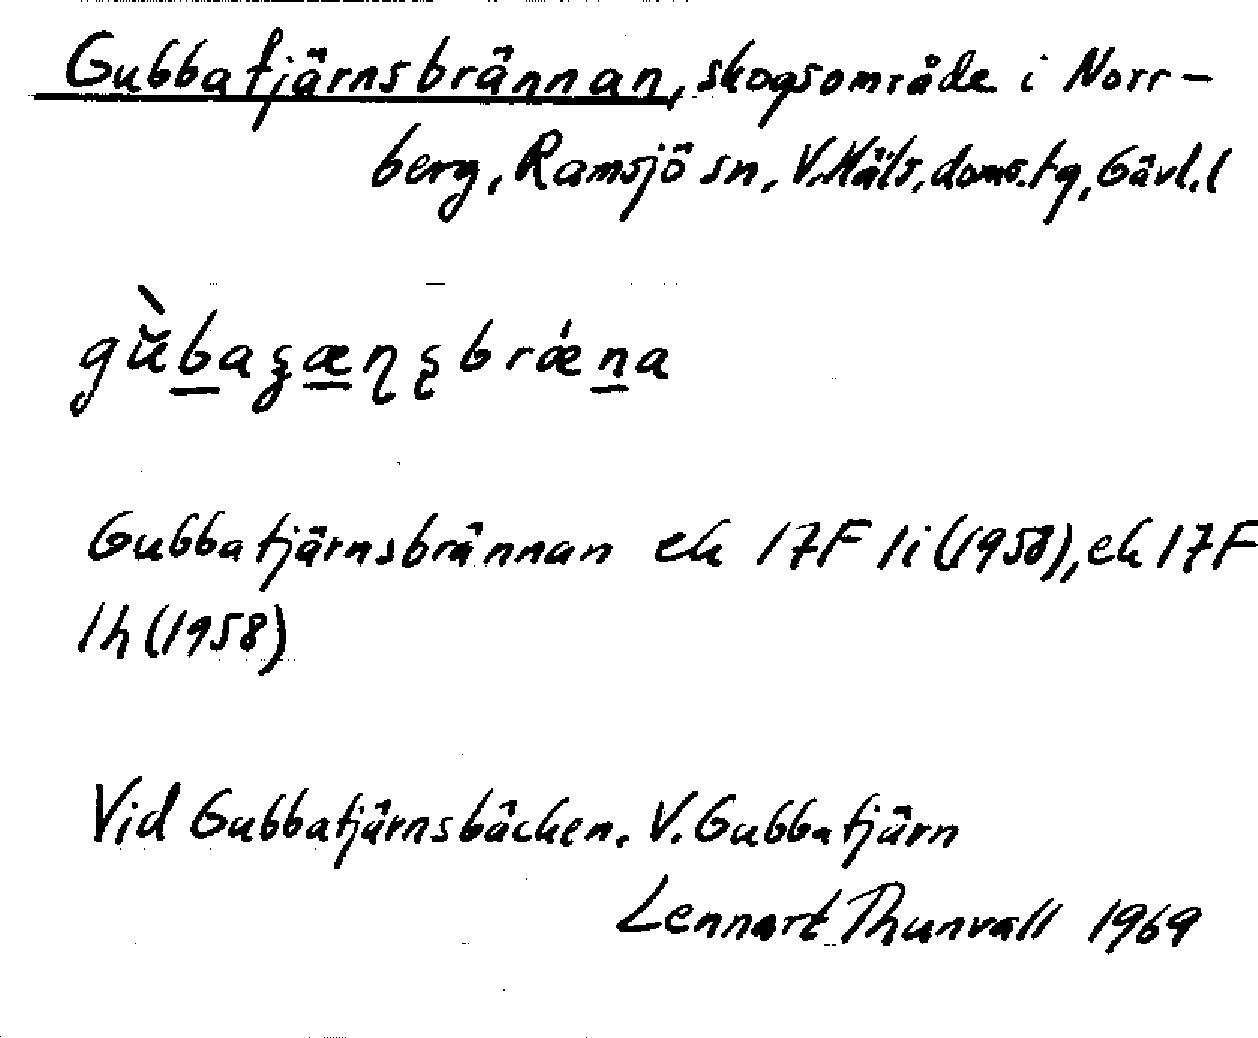 Gubbatjärnsbrännan, skogsområde i Norr-
berg, Ramsjö sn, V.Häls. doms.tg, Gävl.l
gùbaʒæɳʂbrǽna
Gubbatjärnsbrännan ek 17F 1i (1958), ek 17F
1h (1958)
Vid Gubbatjärnsbäcken. V. Gubbatjärn
Lennart Thunvall 1969